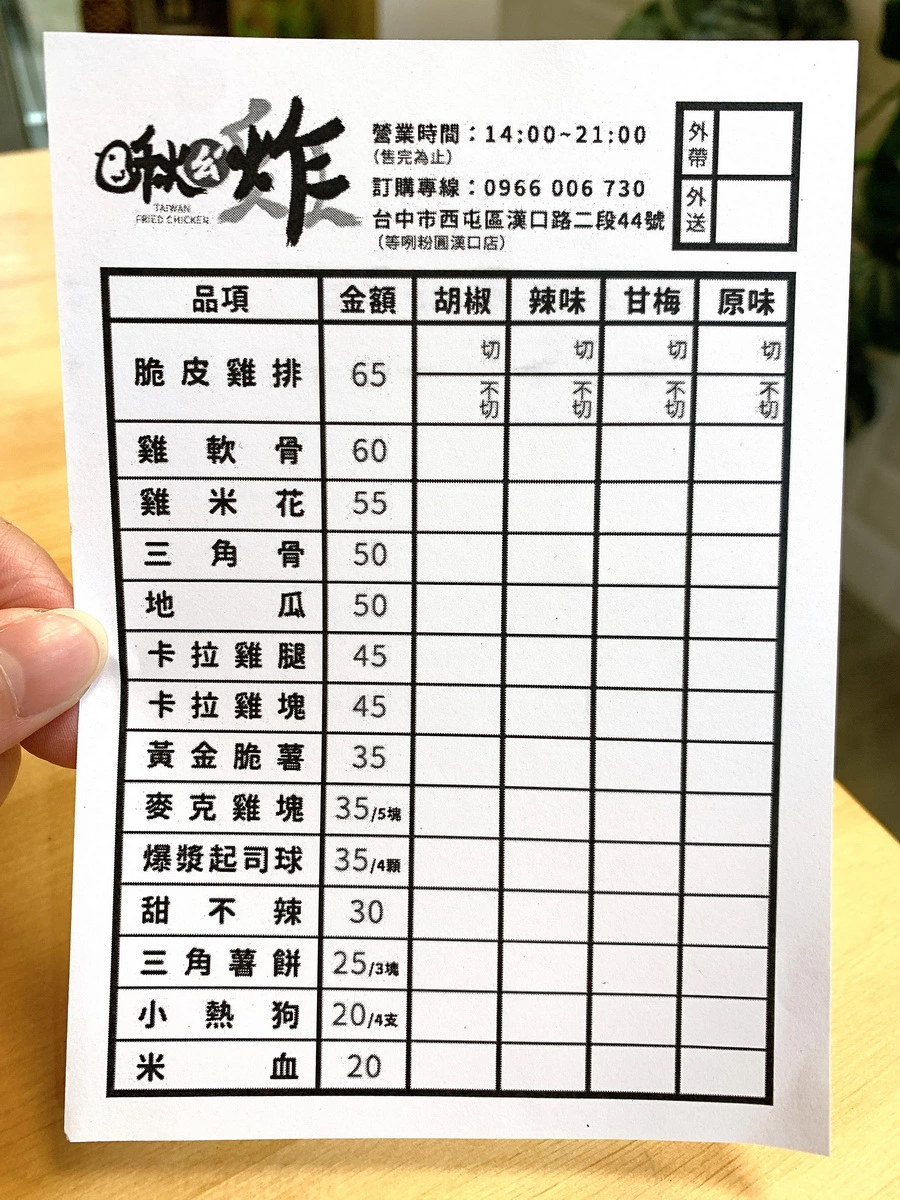 炸
TAIWAN
FRIED CHICKEN
營業時間：14:00~21:00
（售完為止）
訂購專線：0966 006 730
台中市西屯區漢口路二段44號
（等咧粉圓漢口店）
外帶
外送
品項 金額 胡椒 辣味 甘梅 原味
脆皮雞排 65 切 切 切 切
不切 不切 不切 不切
雞軟骨 60
雞米花 55
三角骨 50
地瓜 50
卡拉雞腿 45
卡拉雞塊 45
黃金脆薯 35
麥克雞塊 35/5塊
爆漿起司球 35/4顆
甜不辣 30
三角薯餅 25/3塊
小熱狗 20/4支
米血 20